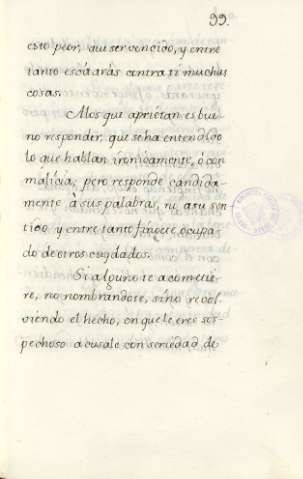 99.
esto peor, qui ser vencido, y entre
tanto escúarás contra ti muchas
cosas.
Alos que aprietan es bue-
no responder, que se ha entendido
lo que hablan ironicamente, ó con
malicia; pero responde candida-
mente à sus palabras, ni a su sen-
tido y entre tanto finjete ocupa-
do de otros cuydados.
Si alguno te acometie-
re, no nombrandote, sino revol-
viendo el hecho, en que le eres sos-
pechoso acusale con seriedad de